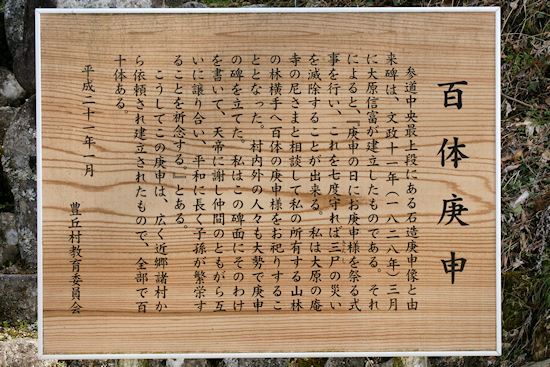 百体庚申
参道中央最上段にある石造庚申像と由
来碑は、文政十一年（一八二八年）三月
に大原信富が建立したものである。それ
によると、「庚申の日にお庚申様を祭る式
事を行い、これを七度守れば三尸の災い
を減除することが出来る。私は大原の庵
寺の尼さまと相談して私の所有する山林
の林横手へ百体の庚申様をお祀りするこ
ととなった。村内外の人々も大勢で庚申
の碑を立てた。私はこの碑面にそのわけ
を書いて、天帝に謝し仲間のともがら互
いに譲り合い、平和に長く子孫が繁栄す
ることを祈念する。」とある。
こうしてこの庚申は、広く近郷諸村か
ら依頼されて建立されたもので、全部で百
十体ある。
平成二十一年一月
豊丘村教育委員会